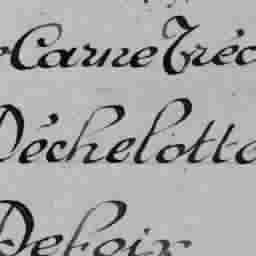 Carne Tréc
Déchelotte
Defoix